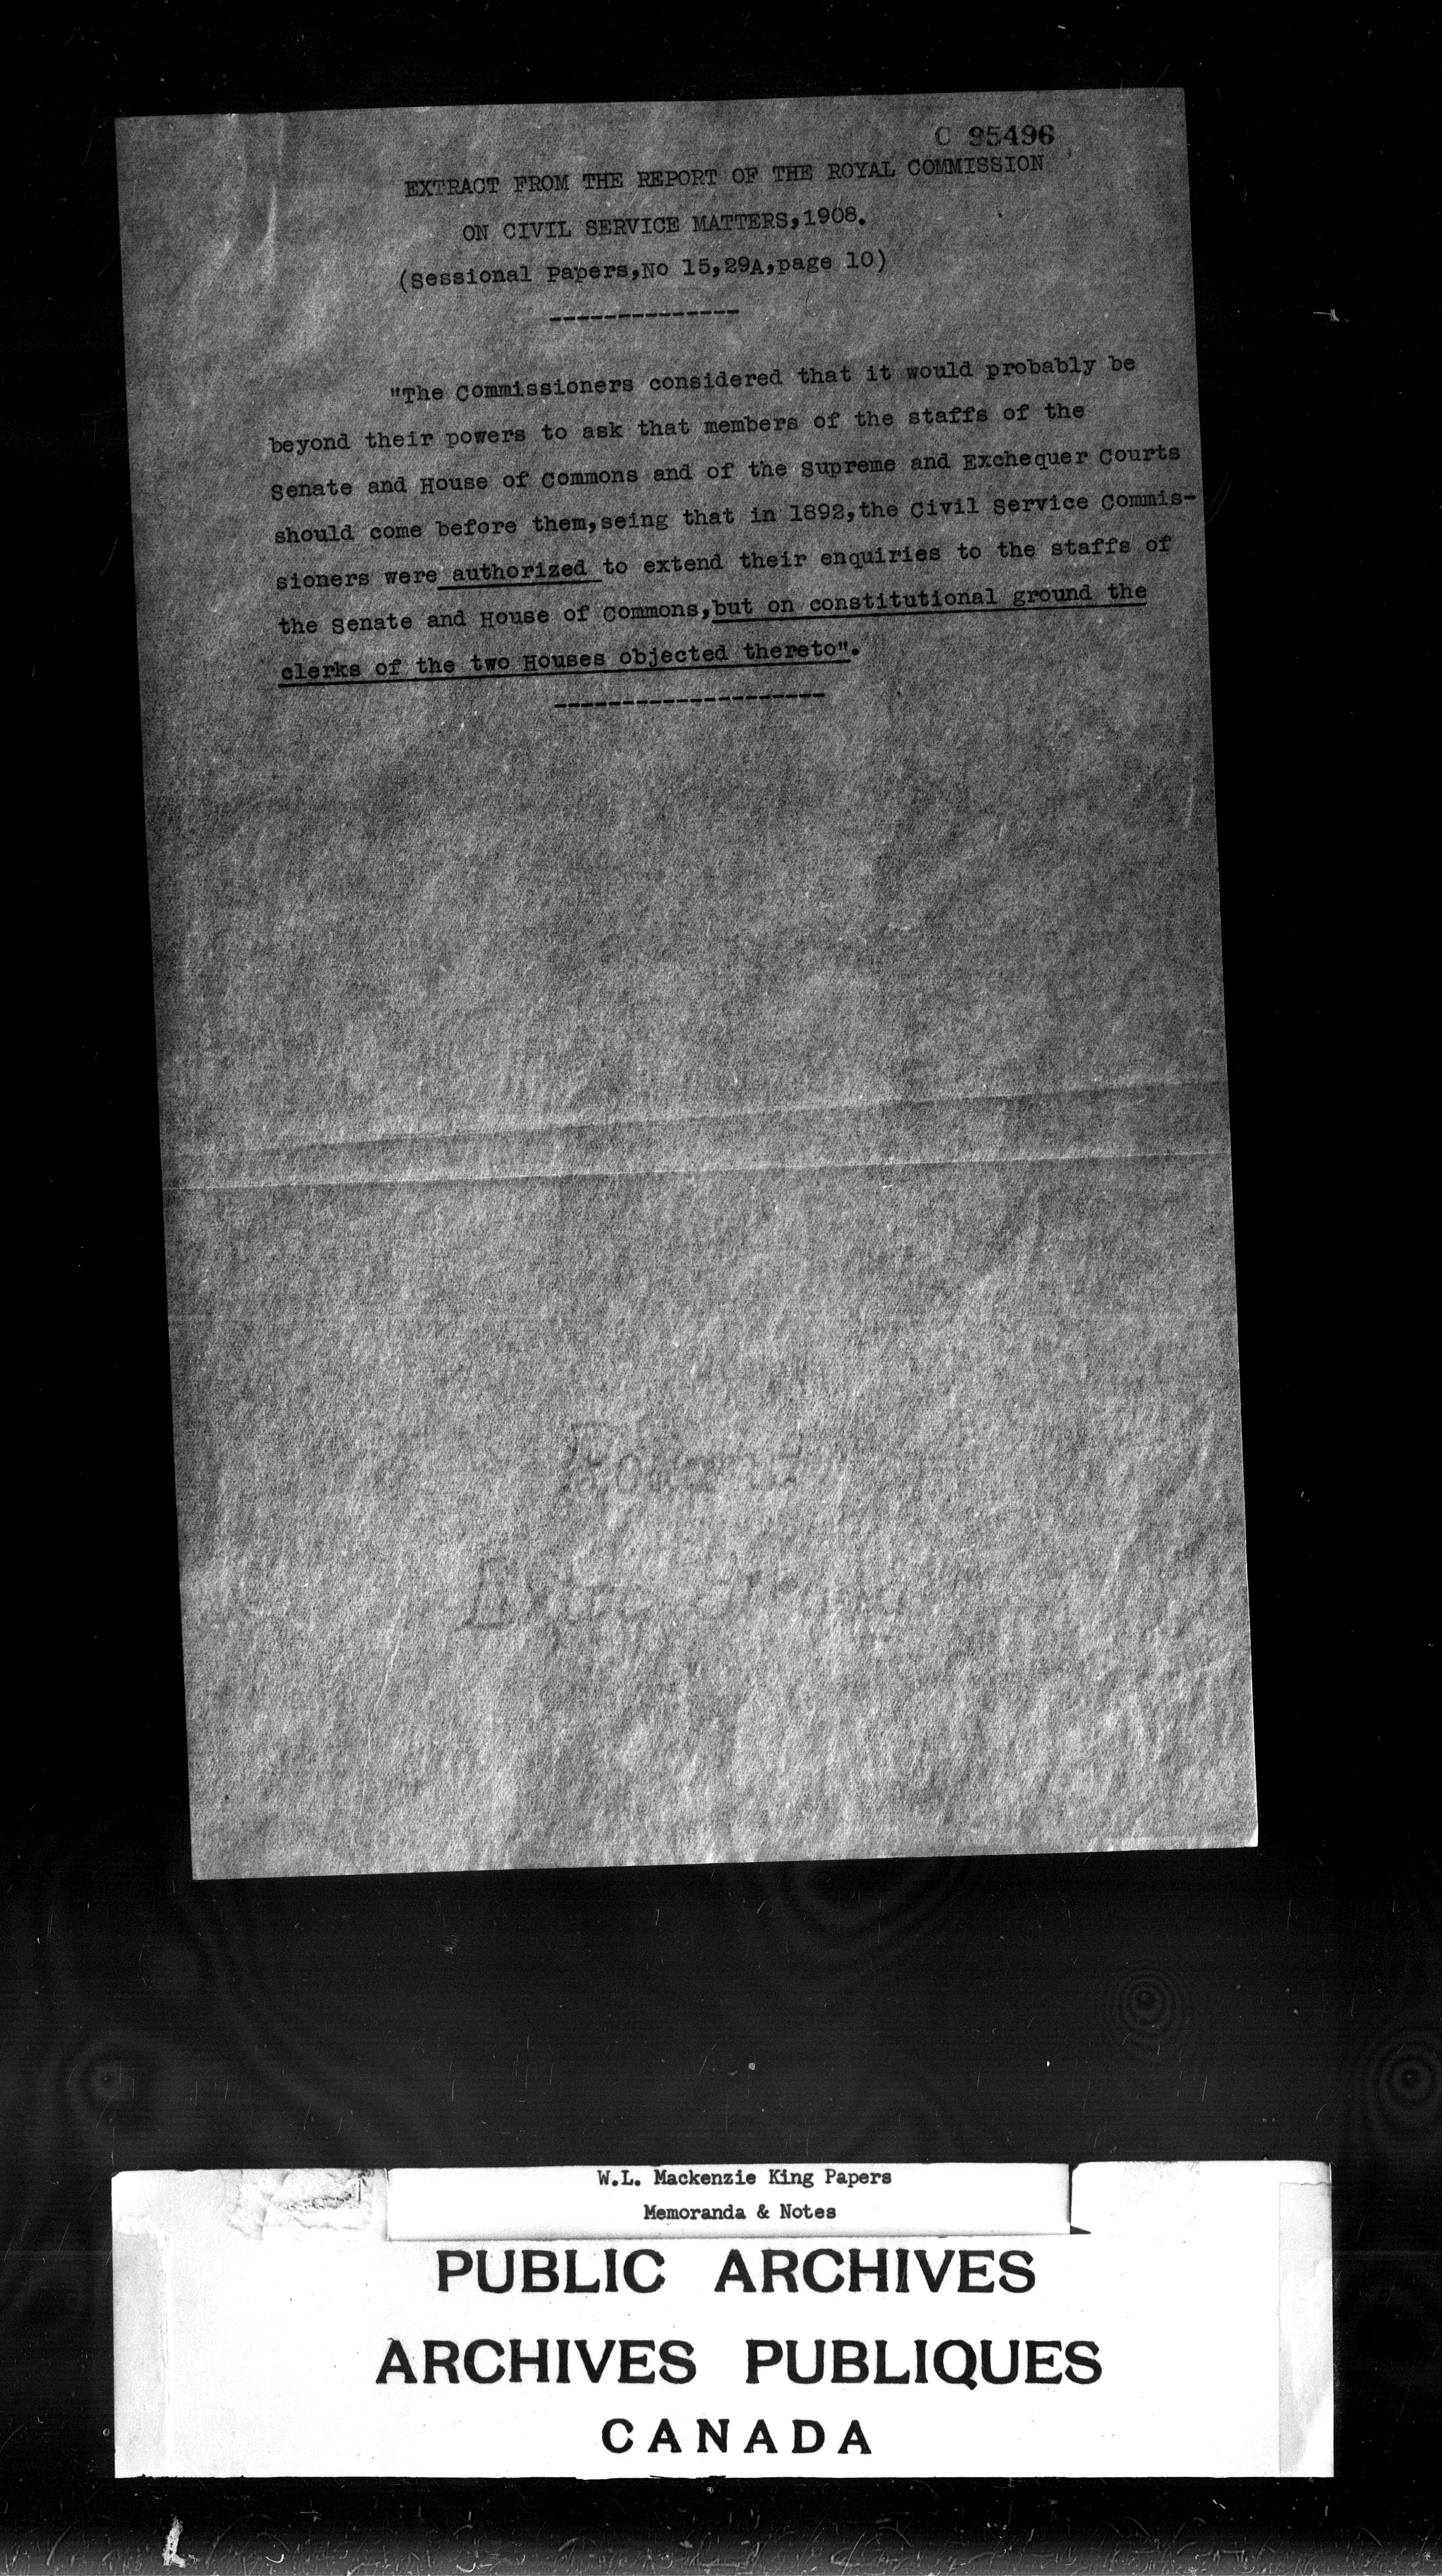 C 95496
EXTRACT FROM THE REPORT OF THE ROYAL COMMISSION
ON CIVIL SERVICE MATTERS,1908.
(Sessional Papers,No 15,29A,page 10)
--------------
"The Commissioners considered that it would probably be
beyond their powers to ask that members of the staffs of the
Senate and House of Commons and of the Supreme and Exchequer Courts
should come before them,seing that in 1892,the Civil Service Commis-
sioners were authorized to extend their enquiries to the staffs of
the Senate and House of Commons,but on constitutional ground the
clerks of the two Houses objected thereto".
--------------------
W.L. Mackenzie King Papers
Memoranda & Notes
PUBLIC ARCHIVES
ARCHIVES PUBLIQUES
CANADA